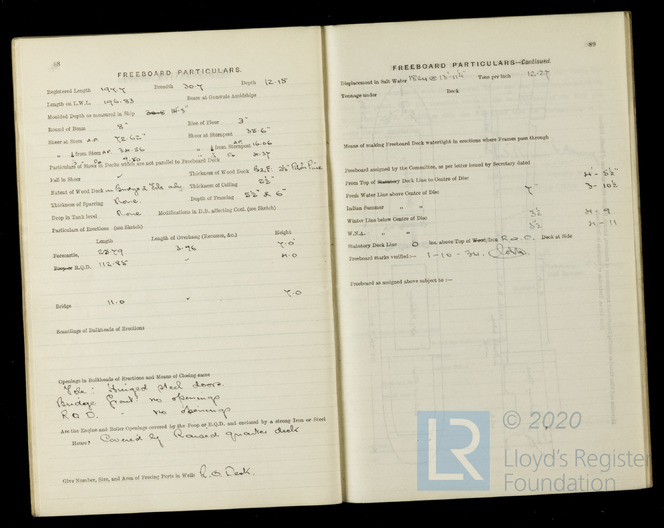 88
FREEBOARD PARTICULARS.
Registered Length 197.7 Breadth 30.7 Depth 12.15
Length on L.W.L. 196.83 Beam at Gunwale Amidships
Moulded Depth as measured in Ship
Round of Beam 8" Rise of Floor 3"
Sheer at Stem A.P. 72.62" Sheer at Sternpost 38.6"
Particulars of Sheer in Decks which are not parallel to Freeboard Deck
Fall in Sheer Thickness of Wood Deck
Extent of Wood Deck on Bridge & Fo'c only. Thickness of Ceiling
Thickness of Sparring None Depth of Framing
Drop in Tank level None Modifications in D.D. affecting Conf. (see Sketch)
Particulars of Erections (see Sketch)
Length Length of Overhang (Recesses, &c.) Height
Forecastle, 3.96 7.0'
R.Q.D. 112.83 " 4.0
Bridge 11.0 " 7.0
Scantlings of Bulkheads of Erections
Openings in Bulkheads of Erections and Means of Closing same
Hinged steel doors.
Bridge front no openings
R.Q.D. " no openings
Are the Engine and Boiler Openings covered by the Poop or R.Q.D. and enclosed by a strong Iron or Steel
House? Covered by Raised quarter deck
Give Number, Size, and Area of Freeing Ports in Wells R.Q. Deck.
89
FREEBOARD PARTICULARS—Continued
Displacement in Salt Water Tons per inch 12.27
Tonnage under Deck
Means of making Freeboard Deck watertight in erections where Frames pass through
Freeboard assigned by the Committee, as per letter issued by Secretary dated
From Top of Statutory Deck Line to Centre of Disc 4 - 5½"
Fresh Water Line above Centre of Disc 7" 3 - 10½
Indian Summer " "
Winter Line below Centre of Disc 3½ 4 - 9
W.N.A. " " 5½ 4 - 11
Statutory Deck Line 0 ins. above Top of Wood, Iron R.Q.D. Deck at Side
Freeboard marks verified:— 1-10-30.
Freeboard as assigned above subject to :—
LR
© 2020
Lloyd's Register
Foundation